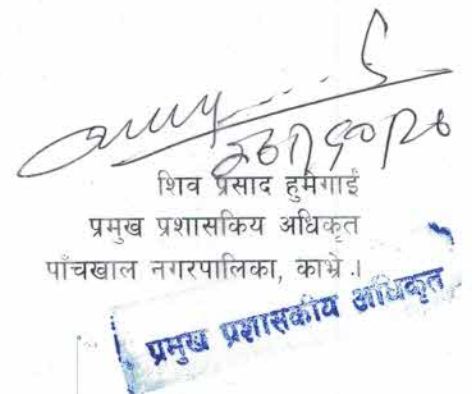 शिव प्रसाद हुमेगाईं
प्रमुख प्रशासकिय अधिकृत
पाँचखाल नगरपालिका, काभ्रे ।
प्रमुख प्रशासकीय अधिकृत